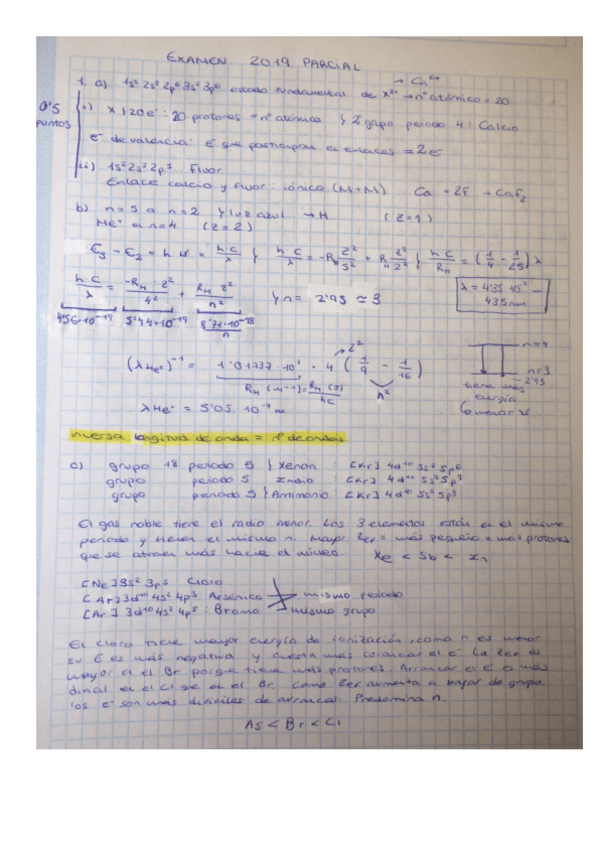 EXAMEN 2019 PARCIAL
→ Ca²⁺
1. a) 1s² 2s² 2p⁶ 3s² 3p⁶ estado fundamental de X²⁺ → nº atómico = 20
0'5 puntos
i) X } 20 e⁻ : 20 protones = nº atómico } 2 grupo periodo 4 : Calcio
e⁻ de valencia: e⁻ que participan en enlaces = 2e⁻
ii) 1s² 2s² 2p⁵ Fluor
Enlace calcio y fluor : iónico (M+M) Ca + 2F → CaF₂
b) n = 5 a n = 2 } luz azul → H (Z=1)
He⁺ n=4 (Z=2)
E₅ - E₂ = h υ = h c / λ } h c / λ = -R_H Z²/5² + R_H Z²/2² } h c / R_H = (1/4 - 1/25) λ
λ = 4'35·10⁻⁷ m
435 nm
h c / λ = -R_H · Z² / 4² + R_H Z² / n² } n = 2'95 ≃ 3
4'56·10⁻¹⁹ 5'44·10⁻¹⁹ 8'71·10⁻¹⁸ / n
(λ He⁺)⁻¹ = 1'01737·10⁷ · 4 (1/9 - 1/16)
→ Z²
n²
R_H (m⁻¹) = R_H (J) / hc
n=4
n=3
2'95
tiene más energía
λ He⁺ = 5'05·10⁻⁷ m
inversa longitud de onda = nº de ondas
c) grupo 18 periodo 5 } Xenon : [Kr] 4d¹⁰ 5s² 5p⁶
grupo periodo 5 Indio : [Kr] 4d¹⁰ 5s² 5p¹
grupo periodo 5 } Antimonio : [Kr] 4d¹⁰ 5s² 5p³
El gas noble tiene el radio menor. Los 3 elementos están en el mismo
periodo y tienen el mismo n. Mayor Zef = más pequeño = más protones
que se atraen más hacia el núcleo. Xe < Sb < In
[Ne] 3s² 3p⁵ Cloro
[Ar] 3d¹⁰ 4s² 4p³ : Arsenico mismo periodo
[Ar] 3d¹⁰ 4s² 4p⁵ : Bromo mismo grupo
El cloro tiene mayor energía de ionización, como n es menor
su E es más negativa y cuesta más arrancar el e⁻. La Zef es
mayor el Br porque tiene más protones. Arrancar el e⁻ es más
dificil en el Cl que en el Br. Como Zef aumenta a bajar de grupo
los e⁻ son más dificiles de arrancar. Predomina n.
As < Br < Cl